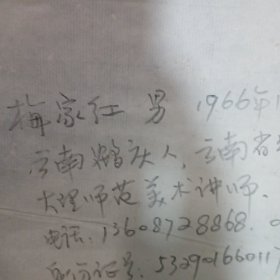 梅家红 男 1966年1
云南鹤庆人,云南省
大理师范美术讲师.
电话.13608728868.0
身份证号.53290166011